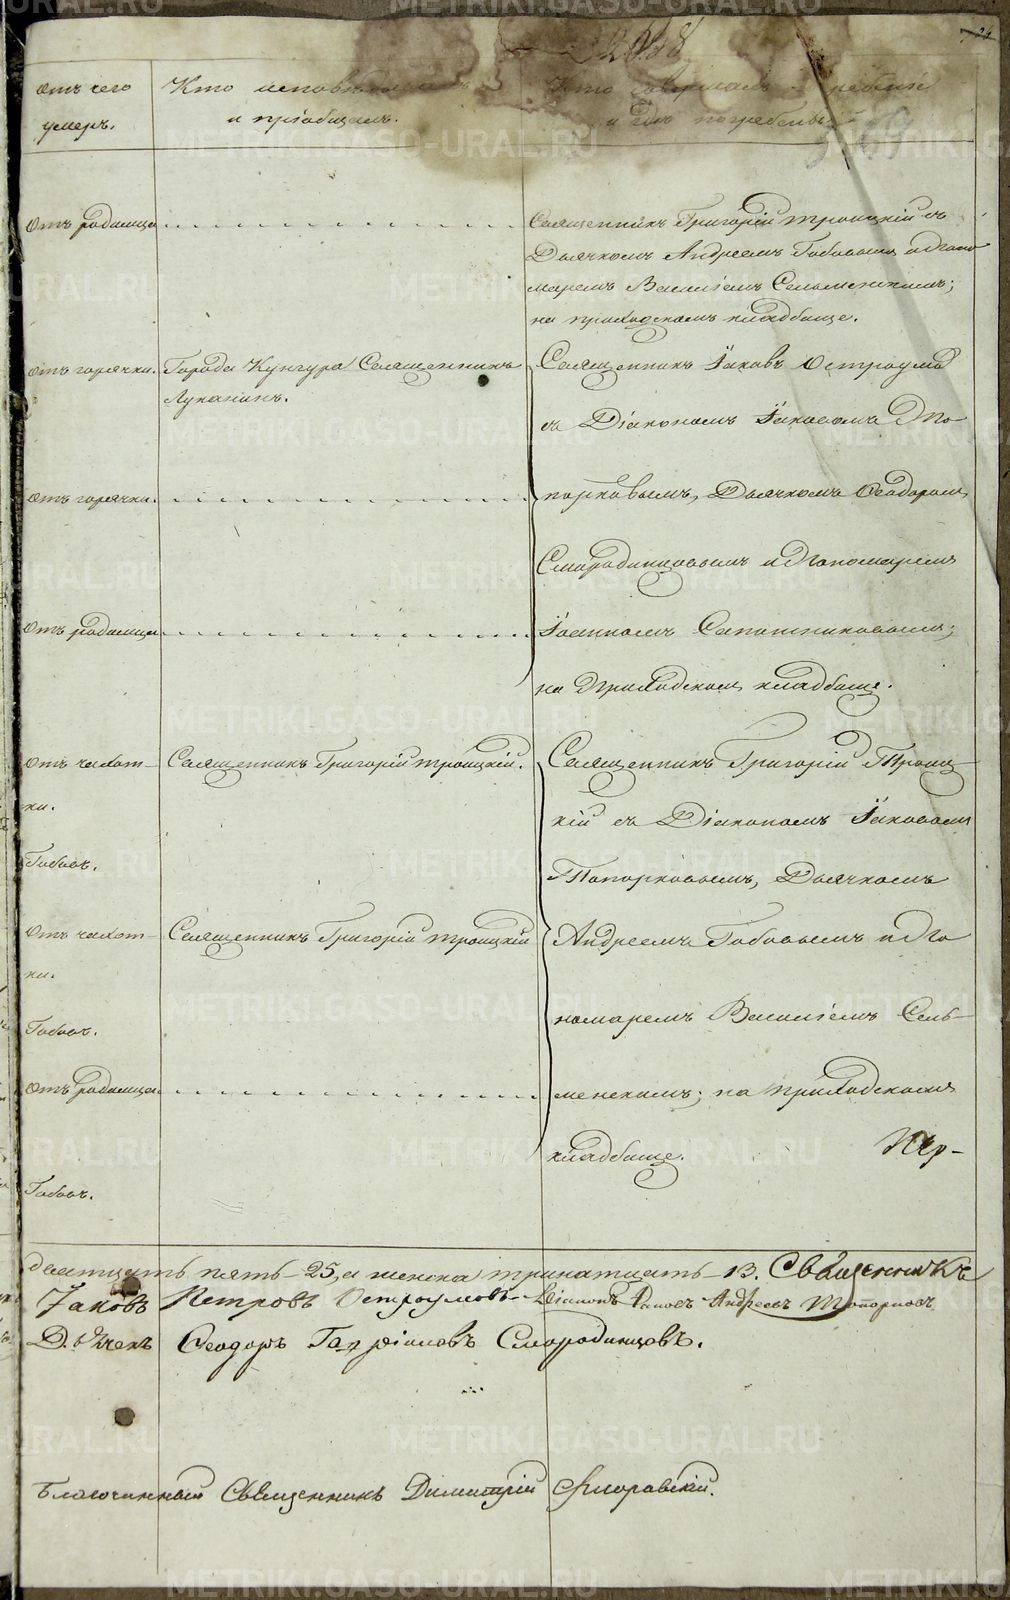 2048
отъ чего умеръ.
Кто исповѣдывалъ и пріобщалъ.
Кто совершалъ погребеніе и гдѣ погребены
Отъ родимца
Священникъ Григорій Троицкій съ
Дьячкомъ Андреемъ Бабовымъ и Поно-
маремъ Василіемъ Сельменскимъ;
на приходскомъ кладбище.
отъ горячки.
Города Кунгура Священникъ
Луканинъ.
Священникъ Іаковъ Остроумовъ
съ Діакономъ Іаковомъ То-
порковымъ, Дьячкомъ Ѳеодоромъ
Смородинцовымъ и Пономаремъ
Іоанномъ Сапожниковымъ;
на Приходскомъ кладбище.
отъ горячки.
Отъ родимца
отъ чахот-
ки.
Священникъ Григорій Троицкій.
Священникъ Григорій Троиц-
кій съ Діакономъ Іаковомъ
Топорковымъ, Дьячкомъ
Андреемъ Бабовымъ и По-
номаремъ Василіемъ Сель-
менскимъ; на приходскомъ
кладбище.
отъ чахот-
ки.
Священникъ Григорій Троицкій
отъ родимца
двадцать пять - 25, а женска тринатцать - 13. Священникъ
Іаковъ Петровъ Остроумовъ. Діаконъ Іаковъ Андреевъ Топорковъ
Дьячекъ Ѳеодоръ Смородинцовъ.
Благочинный Священникъ Димитрій
METRIKI.GASO-URAL.RU